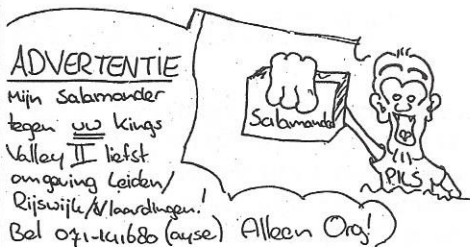 ADVERTENTIE
Mijn Salamander
tegen uw Kings
Valley II liefst
omgeving Leiden/
Rijswijk/Vlaardingen!
Bel 071-141680 (ayse) Alleen Org!
Salamander
PILS